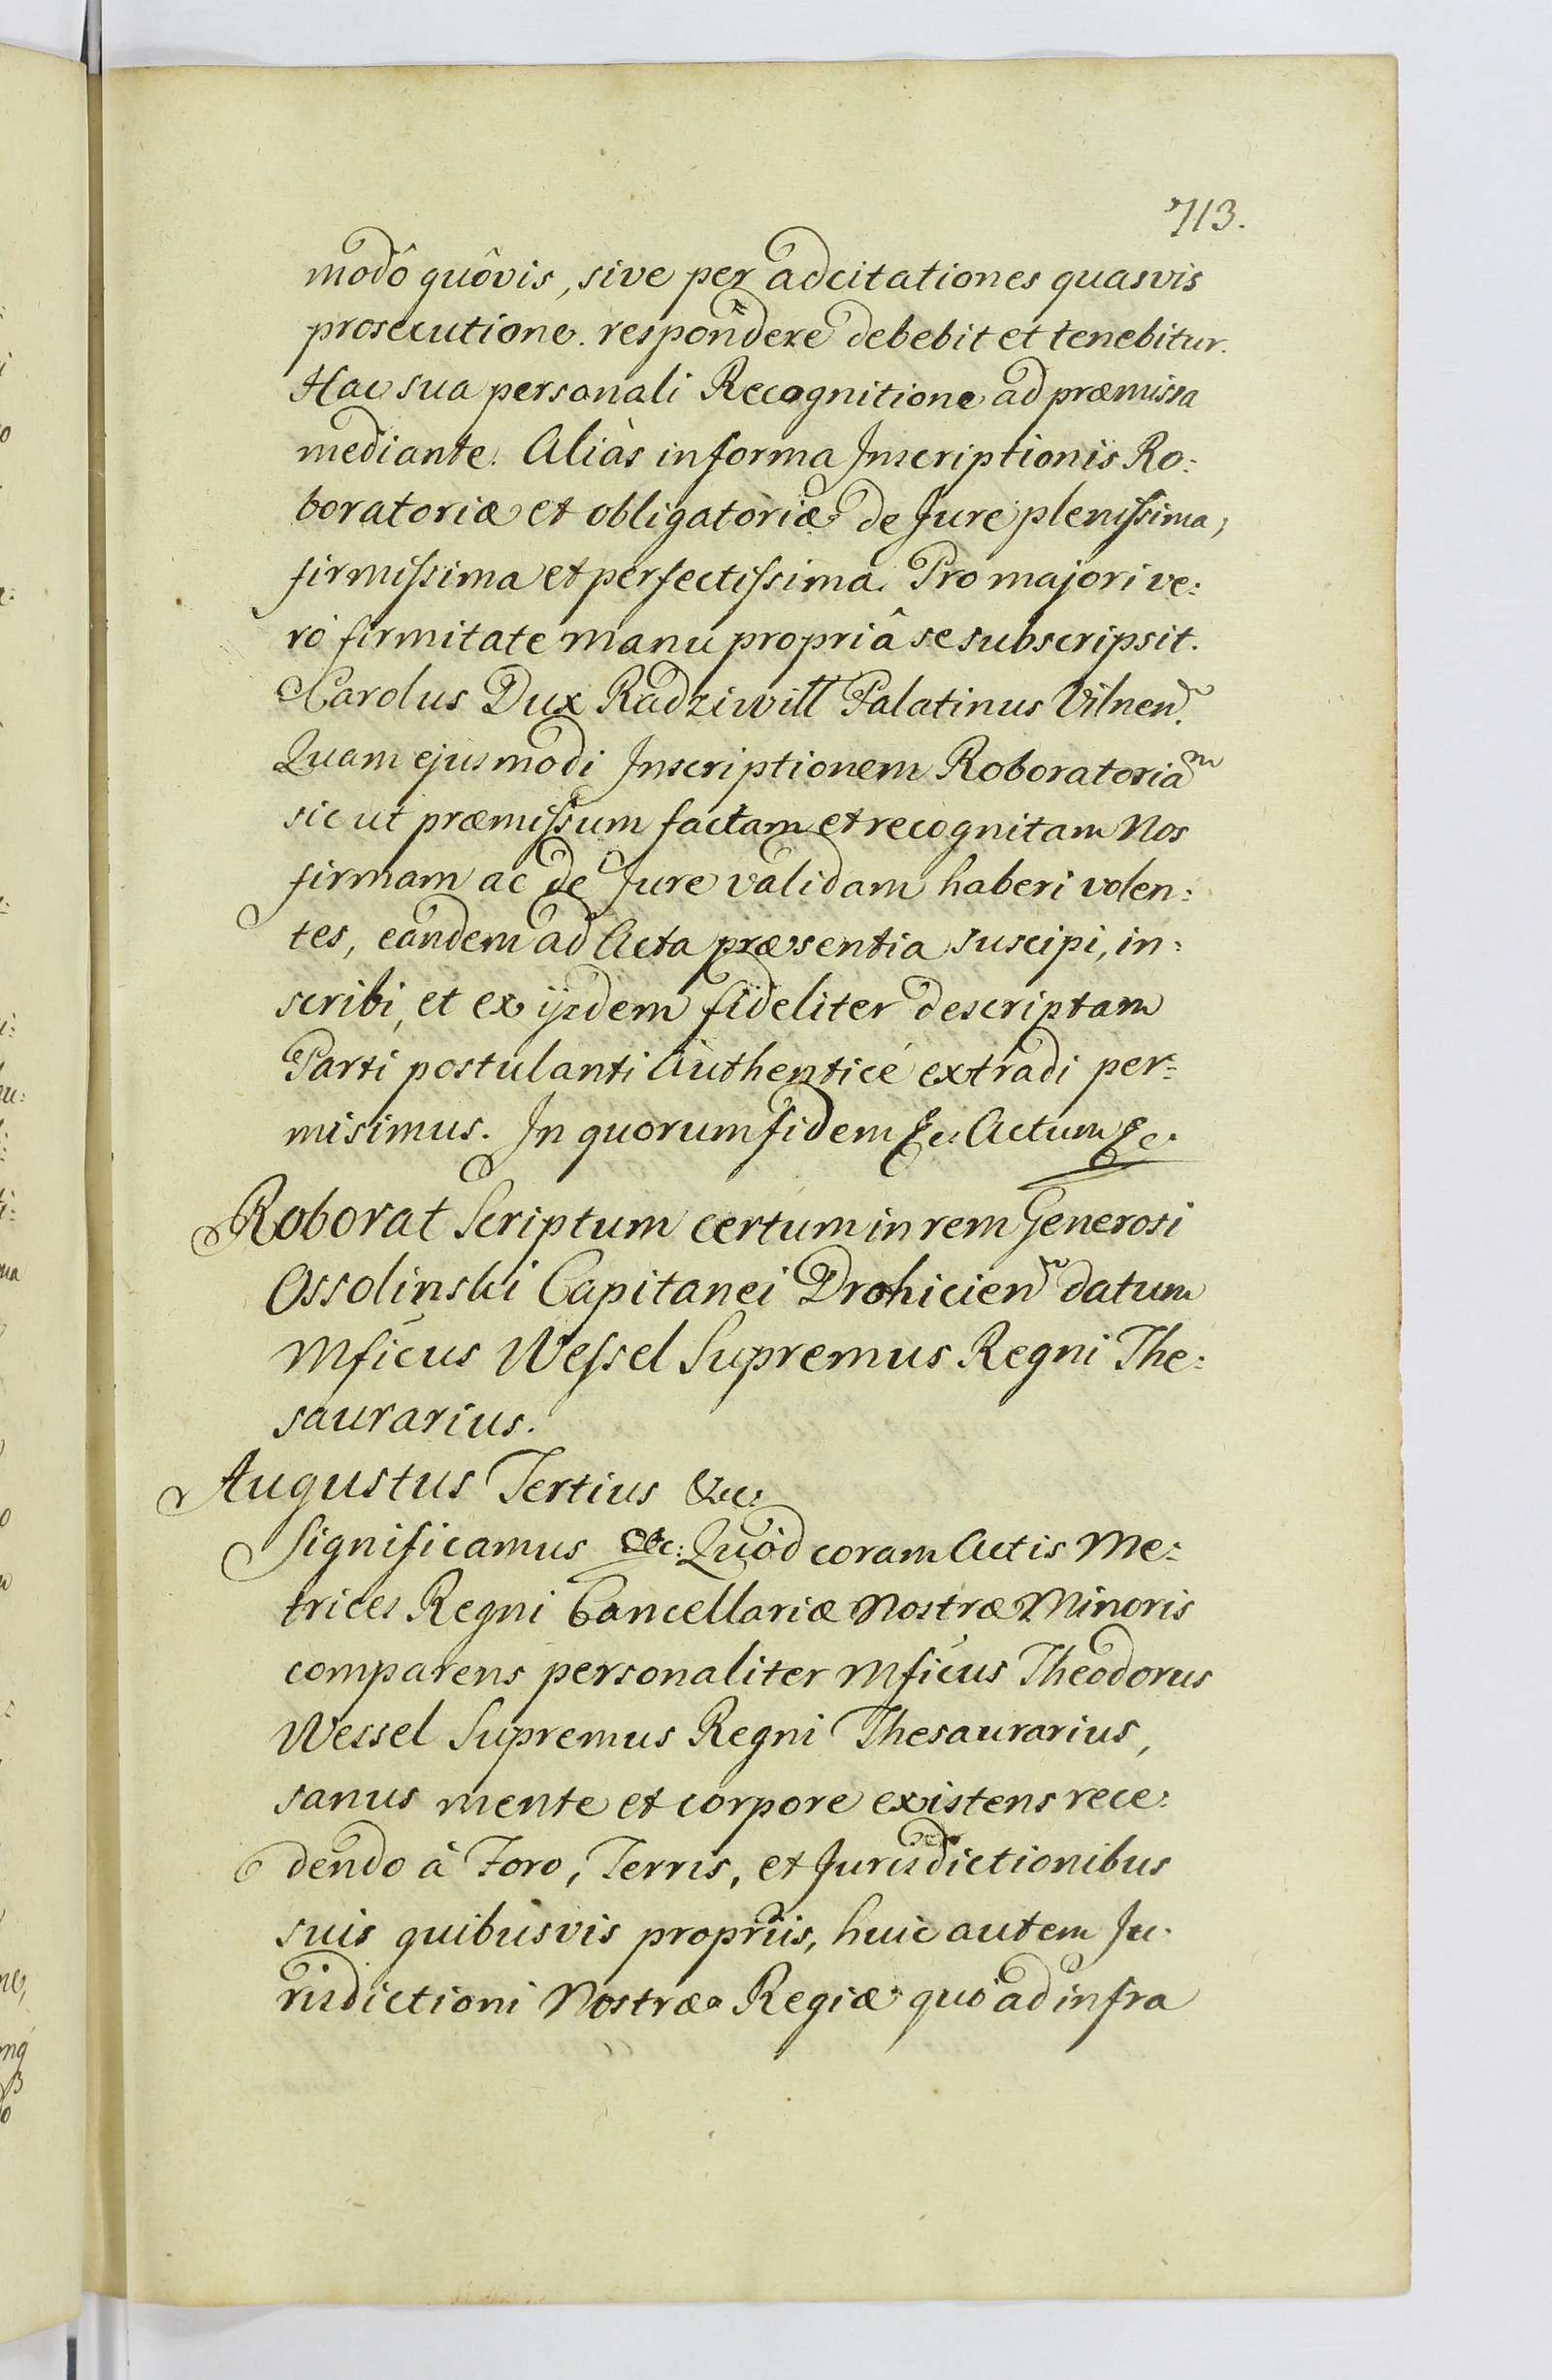 713.
modô quôvis, sive per adcitationes quasvis
prosecutione respondere debebit et tenebitur.
Hac sua personali Recognitione ad præmissa
mediante. Aliàs in forma Inscriptionis Ro:
boratoriæ et obligatoriæ de Jure plenissima,
firmissima et perfectissima. Pro majori ve:
rò firmitate manu propriâ se subscripsit.
Carolus Dux Radziwill Palatinus Vilnen.
Quam ejusmodi Inscriptionem Roboratoriam
sic ut præmissum factam et recognitam Nos
firmam ac de Jure validam haberi volen:
tes, eandem ad Acta præsentia suscipi, in:
scribi, et ex ijsdem fideliter descriptam
Parti postulanti Authenticè extradi per:
misimus. In quorum fidem &c: Actum &c.
Roborat Scriptum certum in rem Generosi
Ossolinski Capitanei Drohicien datum
Mficus Wessel Supremus Regni The:
saurarius.
Augustus Tertius &c:
Significamus &c: Quòd coram Actis Me:
trices Regni Cancellariæ Nostræ Minoris
comparens personaliter Mficus Theodorus
Wessel Supremus Regni Thesaurarius,
sanus mente et corpore existens rece:
dendo à Foro, Terris, et Jurisdictionibus
suis quibusvis propriis, huic autem Ju:
risdictioni Nostræ Regiæ quo ad infra